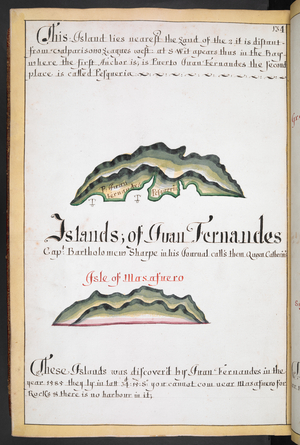 134
This Island lies nearest the Land of the 2 it is distant
from Valparisō 110 Leagues west. at S·W it apears thus in the Bay
where the first Anchor is, is Puerto Juan Fernandes the second
place is called Pesqueria
P. Juan
Fernandes
Pesqueria
Islands; of Juan Fernandes
Capt. Bartholomew Sharpe in his Journal calls them Queen Catherin
Isle of Masafuero
These Islands was discover'd by Juan Fernandes in the
year 1585 they ly in latt 34.10.S. you cannot com near Masafuero for
Rocks & there is no harbour in it;